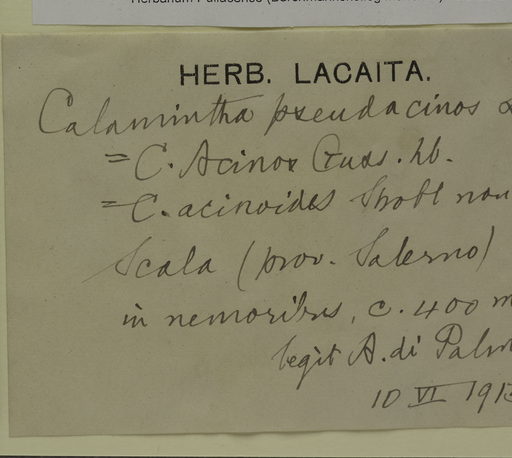 HERB. LACAITA.
Calamintha pseudacinos
= C. Acinos Guss. hb.
= C. acinoides Strobl non
Scala (prov. Salerno)
in nemoribus, c. 400 m
legit A. di Palm
10 VI 191